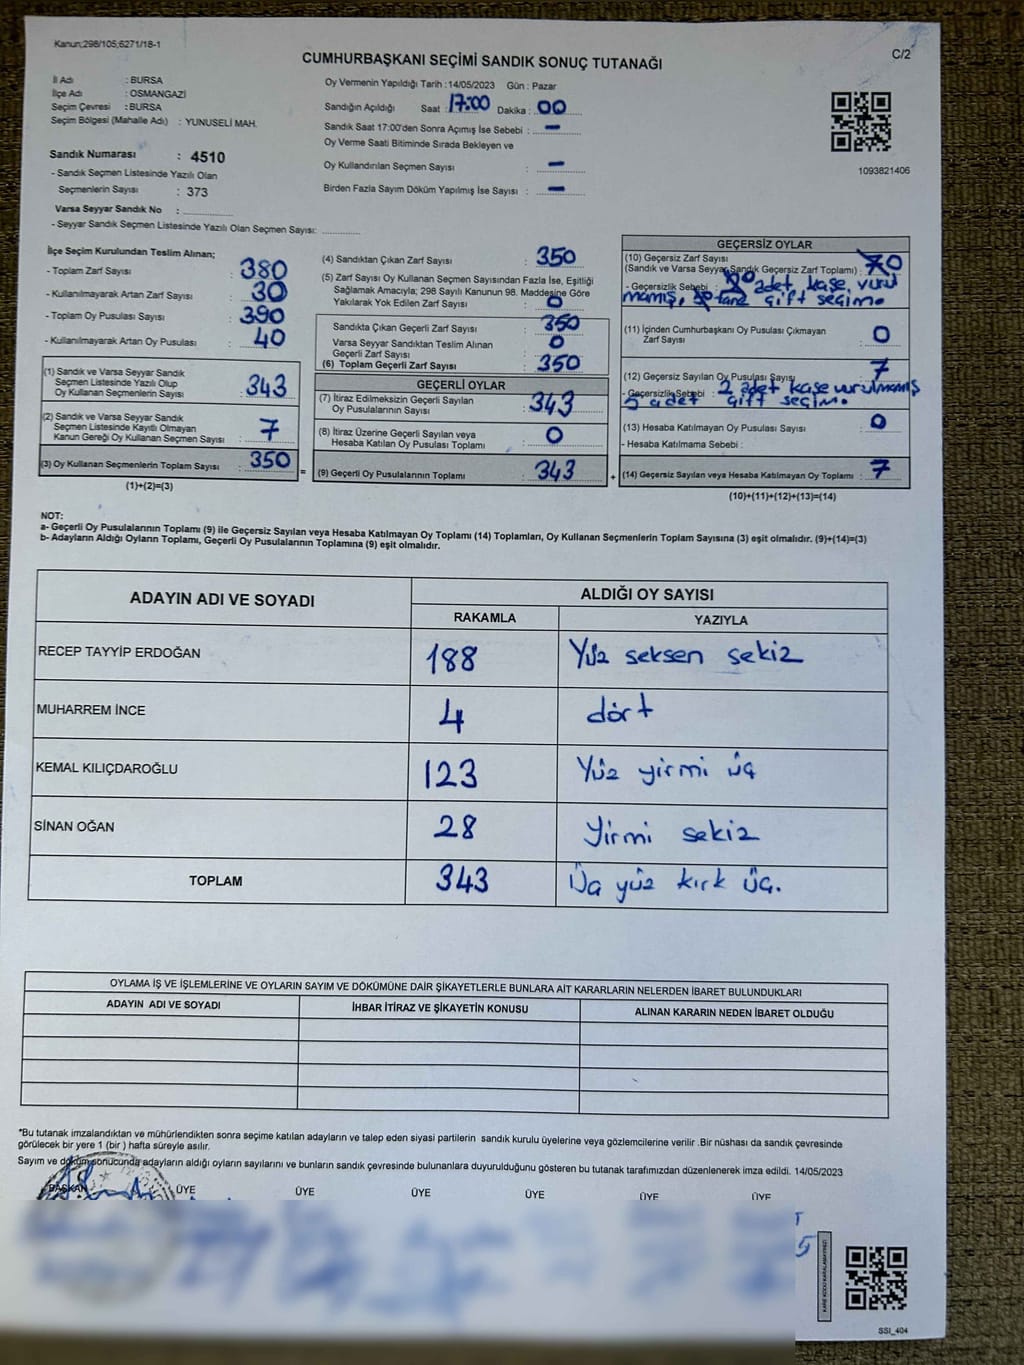 Kanun;298/105;6271/18-1
C/2
CUMHURBAŞKANI SEÇİMİ SANDIK SONUÇ TUTANAĞI
İl Adı : BURSA
İlçe Adı : OSMANGAZİ
Seçim Çevresi : BURSA
Seçim Bölgesi (Mahalle Adı) : YUNUSELİ MAH.
Sandık Numarası : 4510
- Sandık Seçmen Listesinde Yazılı Olan
Seçmenlerin Sayısı : 373
Varsa Seyyar Sandık No :
- Seyyar Sandık Seçmen Listesinde Yazılı Olan Seçmen Sayısı:
Oy Vermenin Yapıldığı Tarih : 14/05/2023 Gün : Pazar
Sandığın Açıldığı Saat : 17:00 Dakika : 00
Sandık Saat 17:00'den Sonra Açımış İse Sebebi : –
Oy Verme Saati Bitiminde Sırada Bekleyen ve
Oy Kullandırılan Seçmen Sayısı : –
Birden Fazla Sayım Döküm Yapılmış İse Sayısı : –
1093821406
İlçe Seçim Kurulundan Teslim Alınan;
- Toplam Zarf Sayısı : 380
- Kullanılmayarak Artan Zarf Sayısı : 30
- Toplam Oy Pusulası Sayısı : 390
- Kullanılmayarak Artan Oy Pusulası : 40
(1) Sandık ve Varsa Seyyar Sandık
Seçmen Listesinde Yazılı Olup
Oy Kullanan Seçmenlerin Sayısı : 343
(2) Sandık ve Varsa Seyyar Sandık
Seçmen Listesinde Kayıtlı Olmayan
Kanun Gereği Oy Kullanan Seçmen Sayısı : 7
(3) Oy Kullanan Seçmenlerin Toplam Sayısı : 350
(1)+(2)=(3)
(4) Sandıktan Çıkan Zarf Sayısı : 350
(5) Zarf Sayısı Oy Kullanan Seçmen Sayısından Fazla İse, Eşitliği
Sağlamak Amacıyla; 298 Sayılı Kanunun 98. Maddesine Göre
Yakılarak Yok Edilen Zarf Sayısı : 0
Sandıkta Çıkan Geçerli Zarf Sayısı : 350
Varsa Seyyar Sandıktan Teslim Alınan
Geçerli Zarf Sayısı : 0
(6) Toplam Geçerli Zarf Sayısı : 350
GEÇERLİ OYLAR
(7) İtiraz Edilmeksizin Geçerli Sayılan
Oy Pusulalarının Sayısı : 343
(8) İtiraz Üzerine Geçerli Sayılan veya
Hesaba Katılan Oy Pusulası Toplamı : 0
= (9) Geçerli Oy Pusulalarının Toplamı : 343
GEÇERSİZ OYLAR
(10) Geçersiz Zarf Sayısı
(Sandık ve Varsa Seyyar Sandık Geçersiz Zarf Toplamı) : 0
- Geçersizlik Sebebi : adet kaşe vurul
mamış, tane çift seçim.
(11) İçinden Cumhurbaşkanı Oy Pusulası Çıkmayan
Zarf Sayısı : 0
(12) Geçersiz Sayılan Oy Pusulası Sayısı : 7
- Geçersizlik Sebebi : 2 adet kaşe vurulmamış
5 adet çift seçim.
(13) Hesaba Katılmayan Oy Pusulası Sayısı : 0
- Hesaba Katılmama Sebebi :
+ (14) Geçersiz Sayılan veya Hesaba Katılmayan Oy Toplamı : 7
(10)+(11)+(12)+(13)=(14)
NOT:
a- Geçerli Oy Pusulalarının Toplamı (9) ile Geçersiz Sayılan veya Hesaba Katılmayan Oy Toplamı (14) Toplamları, Oy Kullanan Seçmenlerin Toplam Sayısına (3) eşit olmalıdır. (9)+(14)=(3)
b- Adayların Aldığı Oyların Toplamı, Geçerli Oy Pusulalarının Toplamına (9) eşit olmalıdır.
ADAYIN ADI VE SOYADI ALDIĞI OY SAYISI
RAKAMLA YAZIYLA
RECEP TAYYİP ERDOĞAN 188 Yüz seksen sekiz
MUHARREM İNCE 4 dört
KEMAL KILIÇDAROĞLU 123 Yüz yirmi üç
SİNAN OĞAN 28 Yirmi sekiz
TOPLAM 343 Üç yüz kırk üç.
OYLAMA İŞ VE İŞLEMLERİNE VE OYLARIN SAYIM VE DÖKÜMÜNE DAİR ŞİKAYETLERLE BUNLARA AİT KARARLARIN NELERDEN İBARET BULUNDUKLARI
ADAYIN ADI VE SOYADI İHBAR İTİRAZ VE ŞİKAYETİN KONUSU ALINAN KARARIN NEDEN İBARET OLDUĞU
*Bu tutanak imzalandıktan ve mühürlendikten sonra seçime katılan adayların ve talep eden siyasi partilerin sandık kurulu üyelerine veya gözlemcilerine verilir .Bir nüshası da sandık çevresinde
görülecek bir yere 1 (bir ) hafta süreyle asılır.
Sayım ve döküm sonucunda adayların aldığı oyların sayılarını ve bunların sandık çevresinde bulunanlara duyurulduğunu gösteren bu tutanak tarafımızdan düzenlenerek imza edildi. 14/05/2023
BAŞKAN ÜYE ÜYE ÜYE ÜYE ÜYE ÜYE
KARE KODU KARALAMAYINIZ!
SSI_404